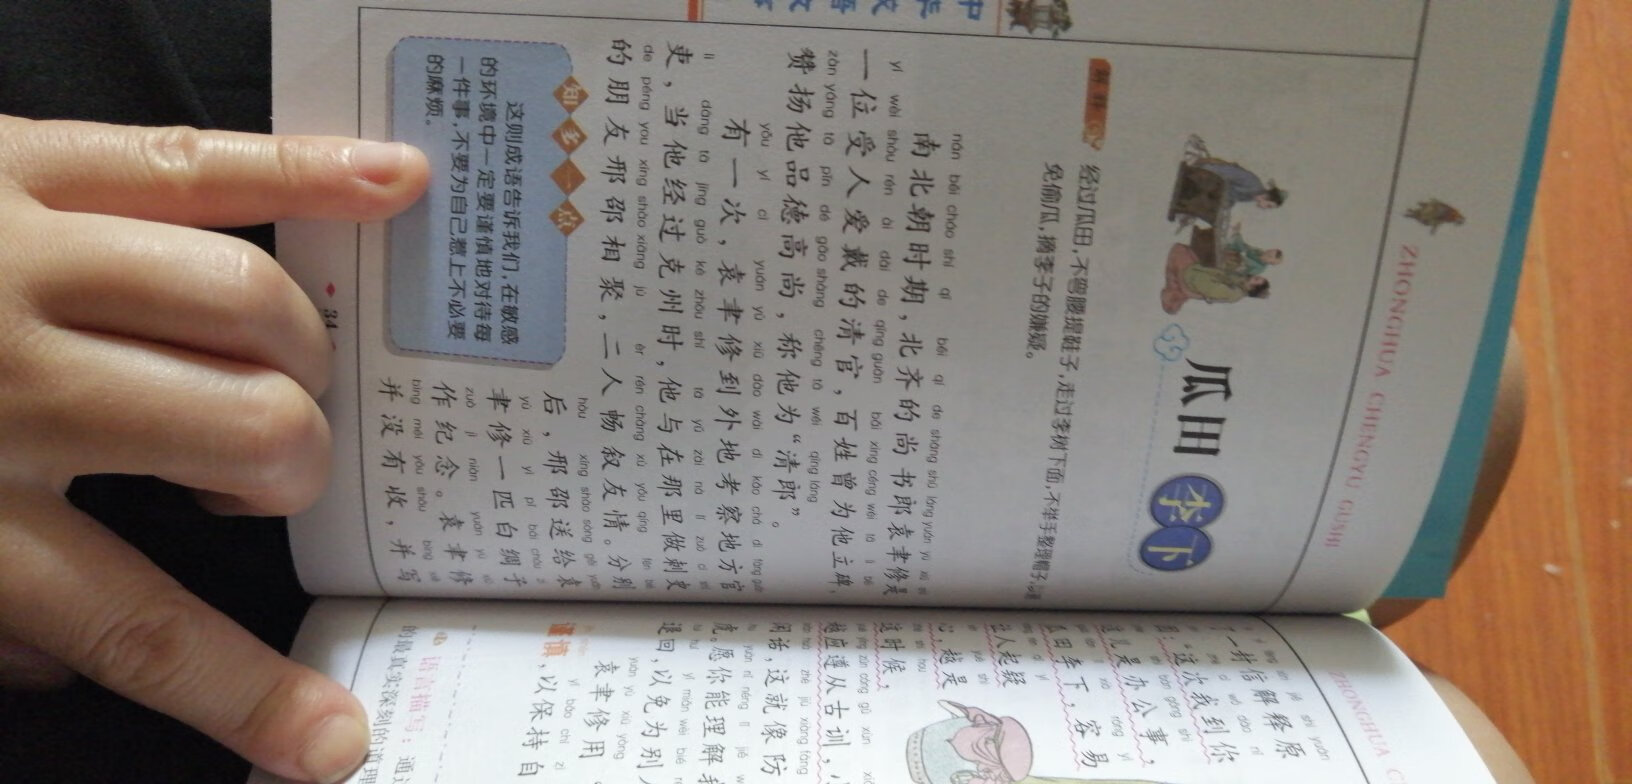 ZHONGHUA CHENGYU GUSHI
瓜田李下
解释
经过瓜田,不弯腰提鞋子,走过李树下面,不举手整理帽子,
免偷瓜,摘李子的嫌疑。
nán běi cháo shí qī běi qí de shàng shū láng yuán yù xiū
南北朝时期,北齐的尚书郎袁聿修是
yí wèi shòu rén ài dài de qīng guān bǎi xìng céng wèi tā lì bēi
一位受人爱戴的清官,百姓曾为他立碑,
zàn yáng tā pǐn dé gāo shàng chēng tā wéi qīng láng
赞扬他品德高尚,称他为“清郎”。
yǒu yí cì yuán yù xiū dào wài dì kǎo chá dì fāng guān
有一次,袁聿修到外地考察地方官
lì dāng tā jīng guò kè zhōu shí tā yǔ zài nà lǐ zuò cì shǐ
吏,当他经过克州时,他与在那里做刺史
de péng you xíng shào xiāng jù èr rén chàng xù yǒu qíng fēn bié
的朋友邢邵相聚,二人畅叙友情。分别
hòu xíng shào sòng gěi yuán
后,邢邵送给袁
yù xiū yì pǐ bái chóu
聿修一匹白绸子
zuò jì niàn yuán yù xiū
作纪念。袁聿修
bìng méi yǒu shōu bìng xiě
并没有收,并写
知多一点
这则成语告诉我们,在敏感
的环境中一定要谨慎地对待每
一件事,不要为自己惹上不必要
的麻烦。
34
ZHONGHUA
一封信解释原
这次我到你
是办公事,
田李下,容易
人起疑
越是
这时候,
越应遵从古训,
闲话,这就像防
虎。愿你能理解我
退回,以免为别人
袁聿修用
谨慎,以保持自
语言描写:通过
的最真实深刻的道理